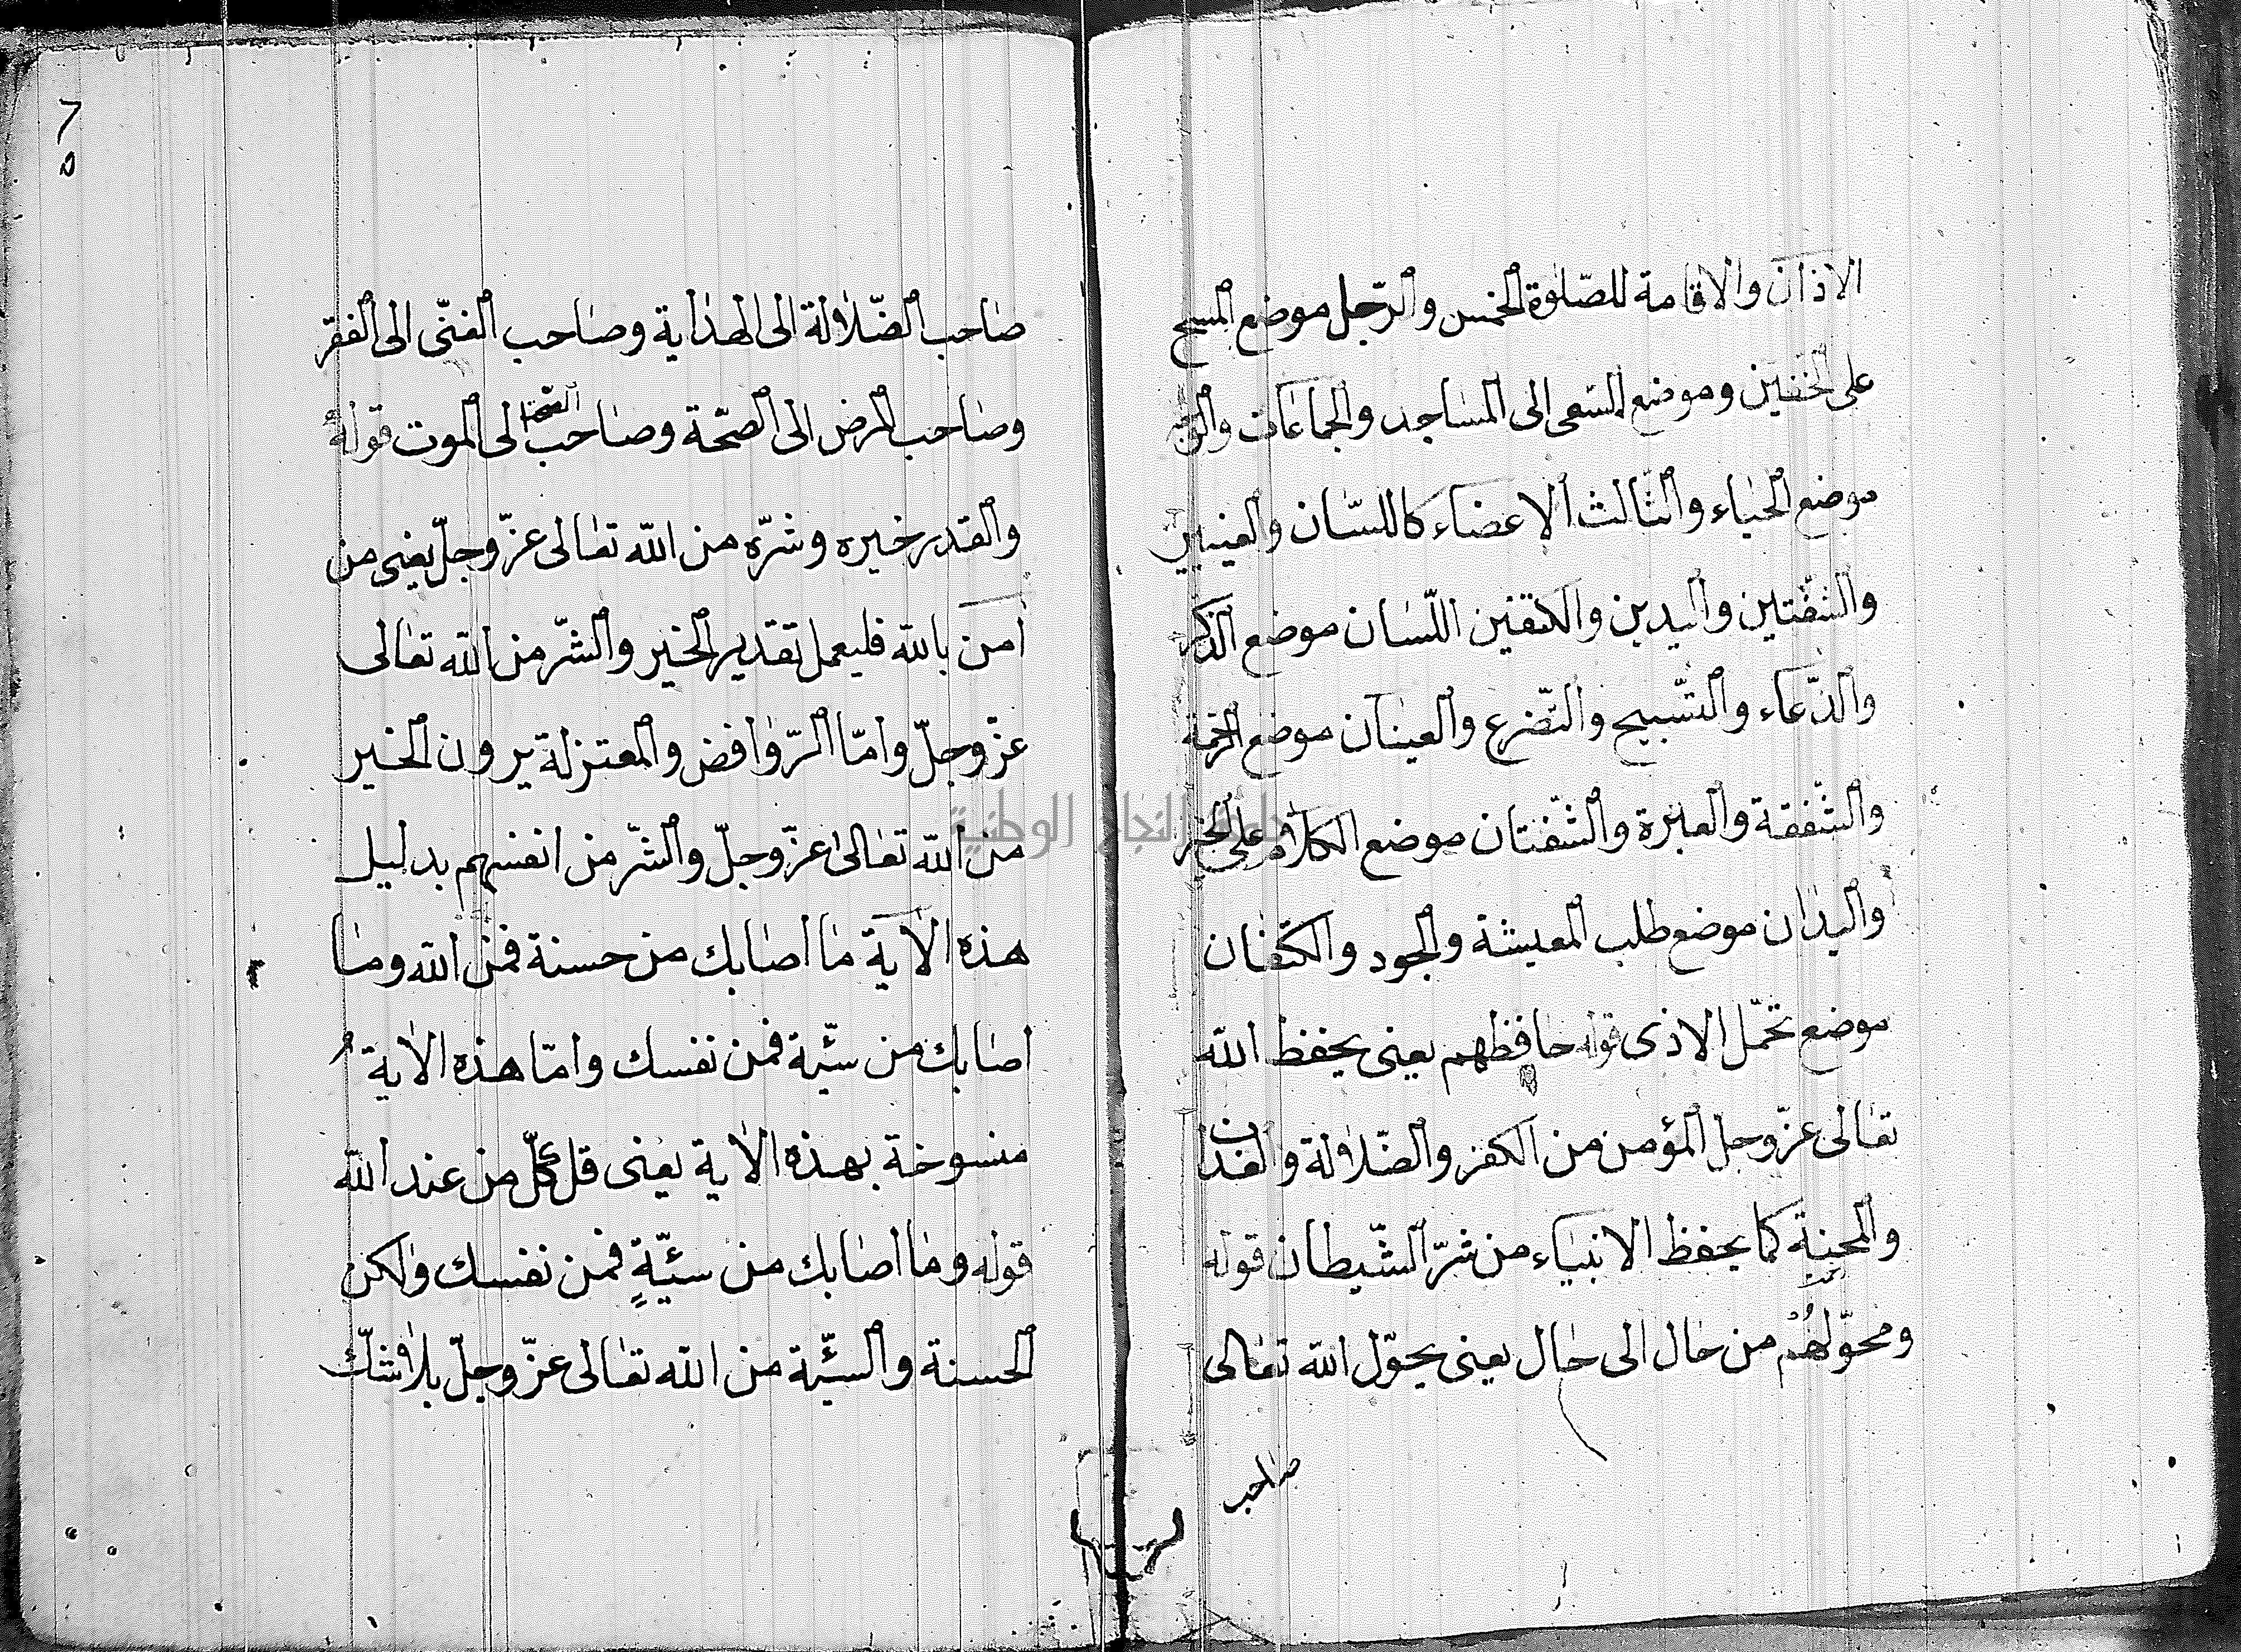 الاذان والاقامة للصّلوة الخمس والرّجل موضع المسح
على الخفين وموضع السّعى الى المساجد والجماعات والوجه
موضع الحياء والثالث الاعضاء كاللسّان والعينين
والشفتين واليدين والكتفين اللّسان موضع الذكر
والدّعاء والتّسبيح والتّضرع والعينان موضع الرحمة
والشّفقة والعبرة والشّفتان موضع الكلام على الخير
واليدان موضع طلب المعيشة والجود والكتفان
موضع تحمّل الاذى قوله حافظهم يعنى يحفظ الله
تعالى عزّ وجل المؤمن من الكفر والضّلالة
كما يحفظ الانبياء من شرّ الشّيطان قوله
ومحوّلهُمْ من حال الى حال يعنى يحوّل الله تعالى
صاحب
٢٥
صاحب الضّلالة الى الهداية وصاحب الغنّى الى الفقر
وصاحب المرض الى الصحّة وصاحب الصّحة الى الموت قوله
والقدر خيره وشرّه من الله تعالى عزّ وجلّ يعنى من
آمن بالله فليعمل تقدير الخير والشّر من الله تعالى
عزّ وجلّ وامّا الرّوافض والمعتزلة يرون الخير
من الله تعالى عزّ وجلّ والشّر من انفسهم بدليل
هذه الآية ما اصابك من حسنة فمن الله وما
اصابك من سيّئة فمن نفسك وامّا هذه الاية
منسوخة بهذه الاية يعنى قل كلّ من عند الله
قوله وما اصابك من سيّئةٍ فمن نفسك ولكن
الحسنة والسيّئة من الله تعالى عزّ وجلّ بلا شكّ